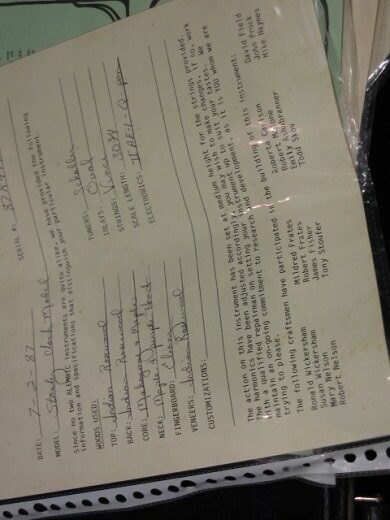 DATE: 7-2-87
SERIAL #: 87
MODEL: Stanley Clark Model
Since no two ALEMBIC instruments are quite alike, we have provided the following
information and specifications that distinguish your particular instrument.
WOODS USED:
TOP: Indian Rosewood
BACK: Indian Rosewood
CORE: Mahogany & Maple
NECK: Maple & Purpleheart
FINGERBOARD: Ebony
VENEERS: Indian Rosewood
CUSTOMIZATIONS:
TUNERS: Schaller
INLAYS: Oval
STRINGS:
SCALE LENGTH: 30 3/4
ELECTRONICS:
The action on this instrument has been set at medium height for the strings provided.
The harmonics have been adjusted accordingly. You may wish to make changes, if so, work
with a qualified repairman on setting your instrument up to suit your tastes. We
maintain an on-going commitment to research and development, as it is YOU whom we are
trying to please.
The following craftsmen have participated in the building of this instrument:
Ronald Wickersham
Susan Wickersham
Mary Nelson
Robert Nelson
Mildred Frates
Robert Frates
James Fisher
Tony Stoufer
Roberta Carlson
Robert Malone
Emily Skow
Todd
David Field
Al Prock
John Haynes
Mike Haynes